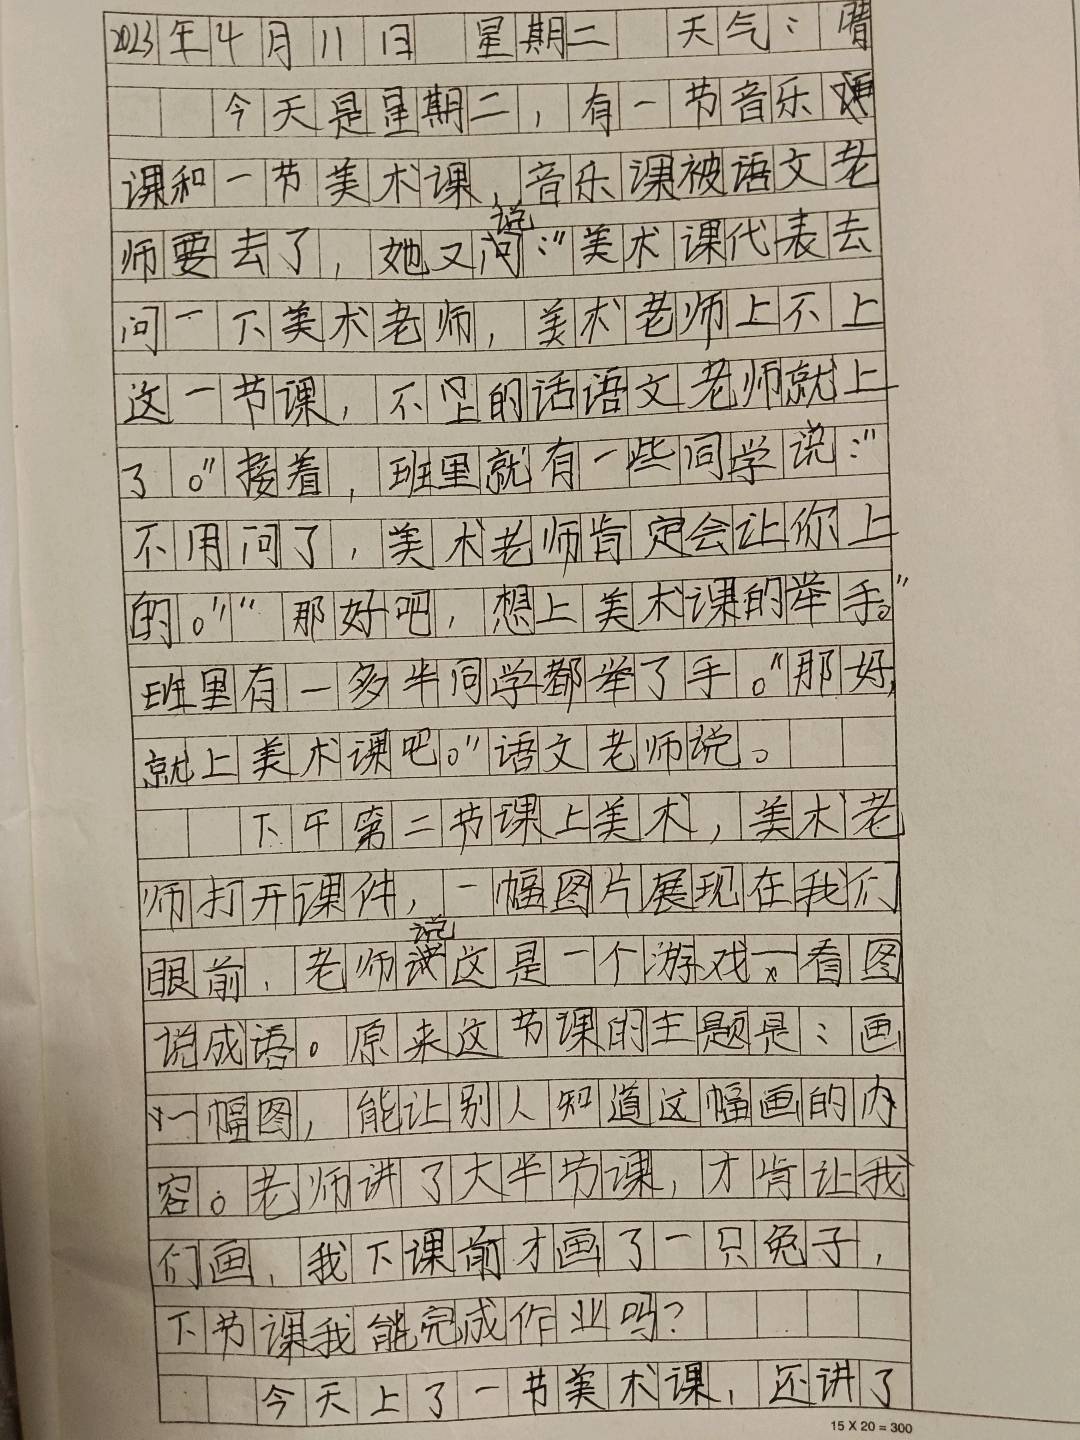 2023年4月11日 星期二 天气：晴
今天是星期二，有一节音乐
课和一节美术课，音乐课被语文老
师要去了，她又说：“美术课代表去
问一下美术老师，美术老师上不上
这一节课，不上的话语文老师就上
了。”接着，班里就有一些同学说：“
不用问了，美术老师肯定会让你上
的。”“那好吧，想上美术课的举手。”
班里有一多半同学都举了手。“那好，
就上美术课吧。”语文老师说。
下午第二节课上美术，美术老
师打开课件，一幅图片展现在我们
眼前，老师说这是一个游戏——看图
说成语。原来这节课的主题是：画
一幅图，能让别人知道这幅画的内
容。老师讲了大半节课，才肯让我
们画，我下课前才画了一只兔子，
下节课我能完成作业吗？
今天上了一节美术课，还讲了
15 X 20 = 300